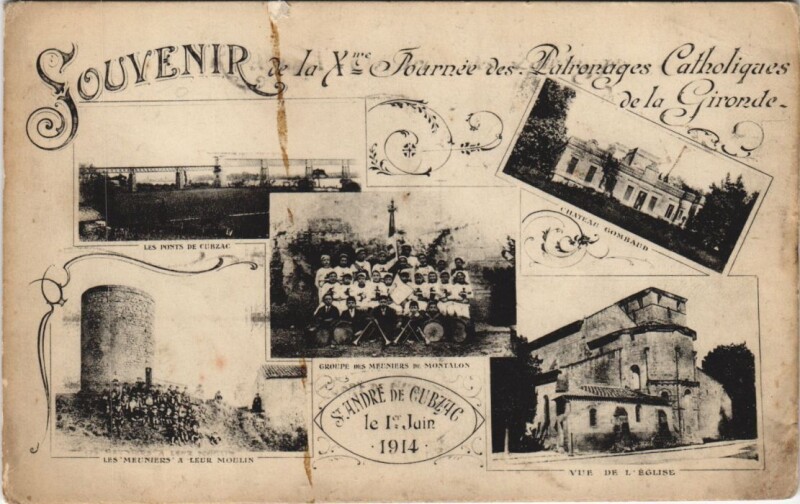 Souvenir de la Xme Journée des Patronages Catholiques
de la Gironde
LES PONTS DE CUBZAC
CHATEAU GOMBAUD
GROUPE DES MEUNIERS DE MONTALON
LES "MEUNIERS" A LEUR MOULIN
St ANDRÉ DE CUBZAC
le 1er Juin
1914
VUE DE L'ÉGLISE